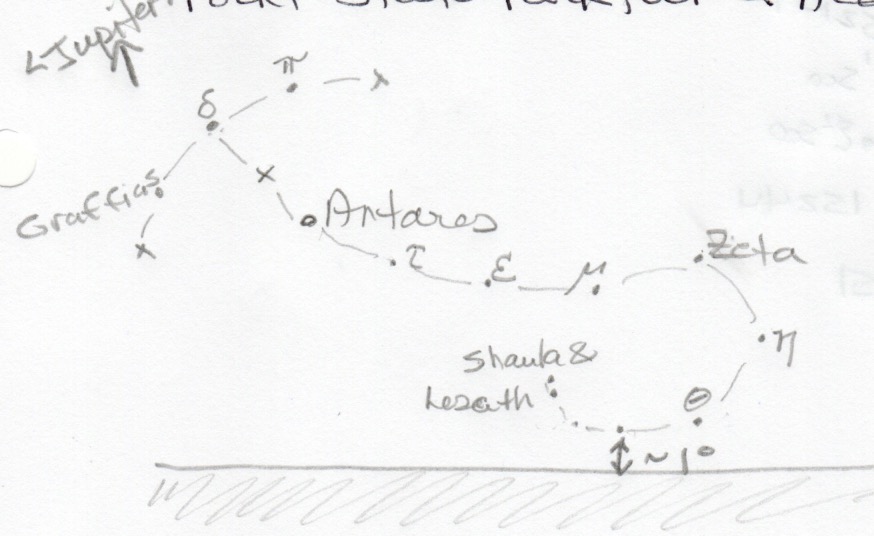 Jupiter
π
δ
Graffias
Antares
τ
ε
μ
Zeta
η
Shaula &
Lesath
θ
~ 1°